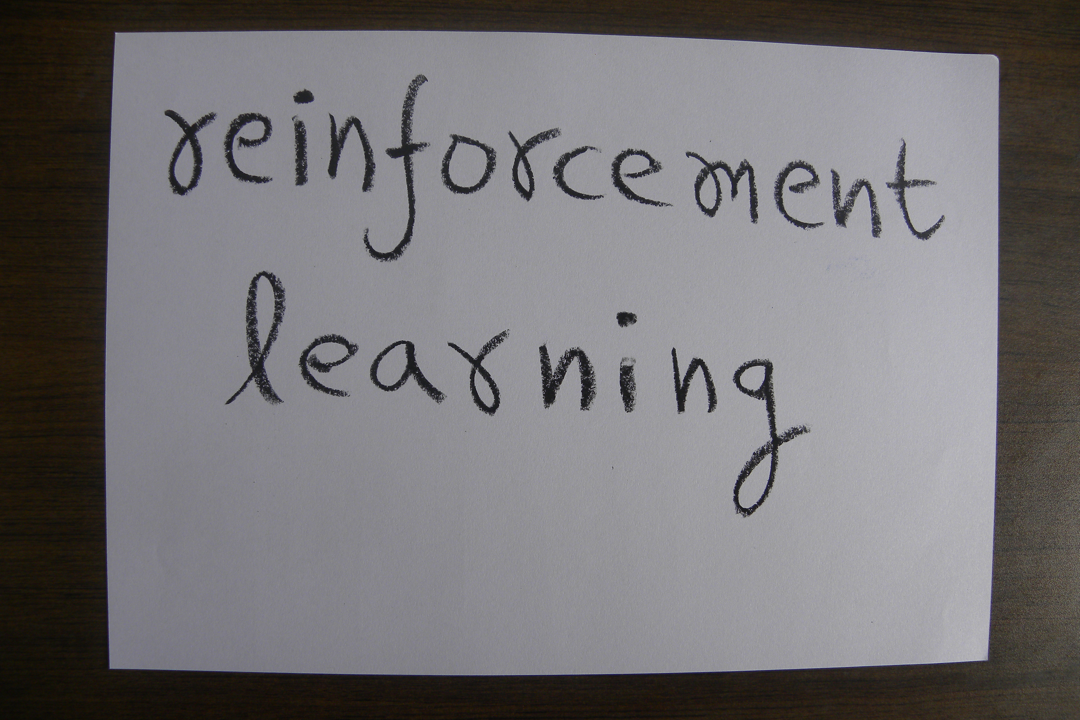 reinforcement
learning